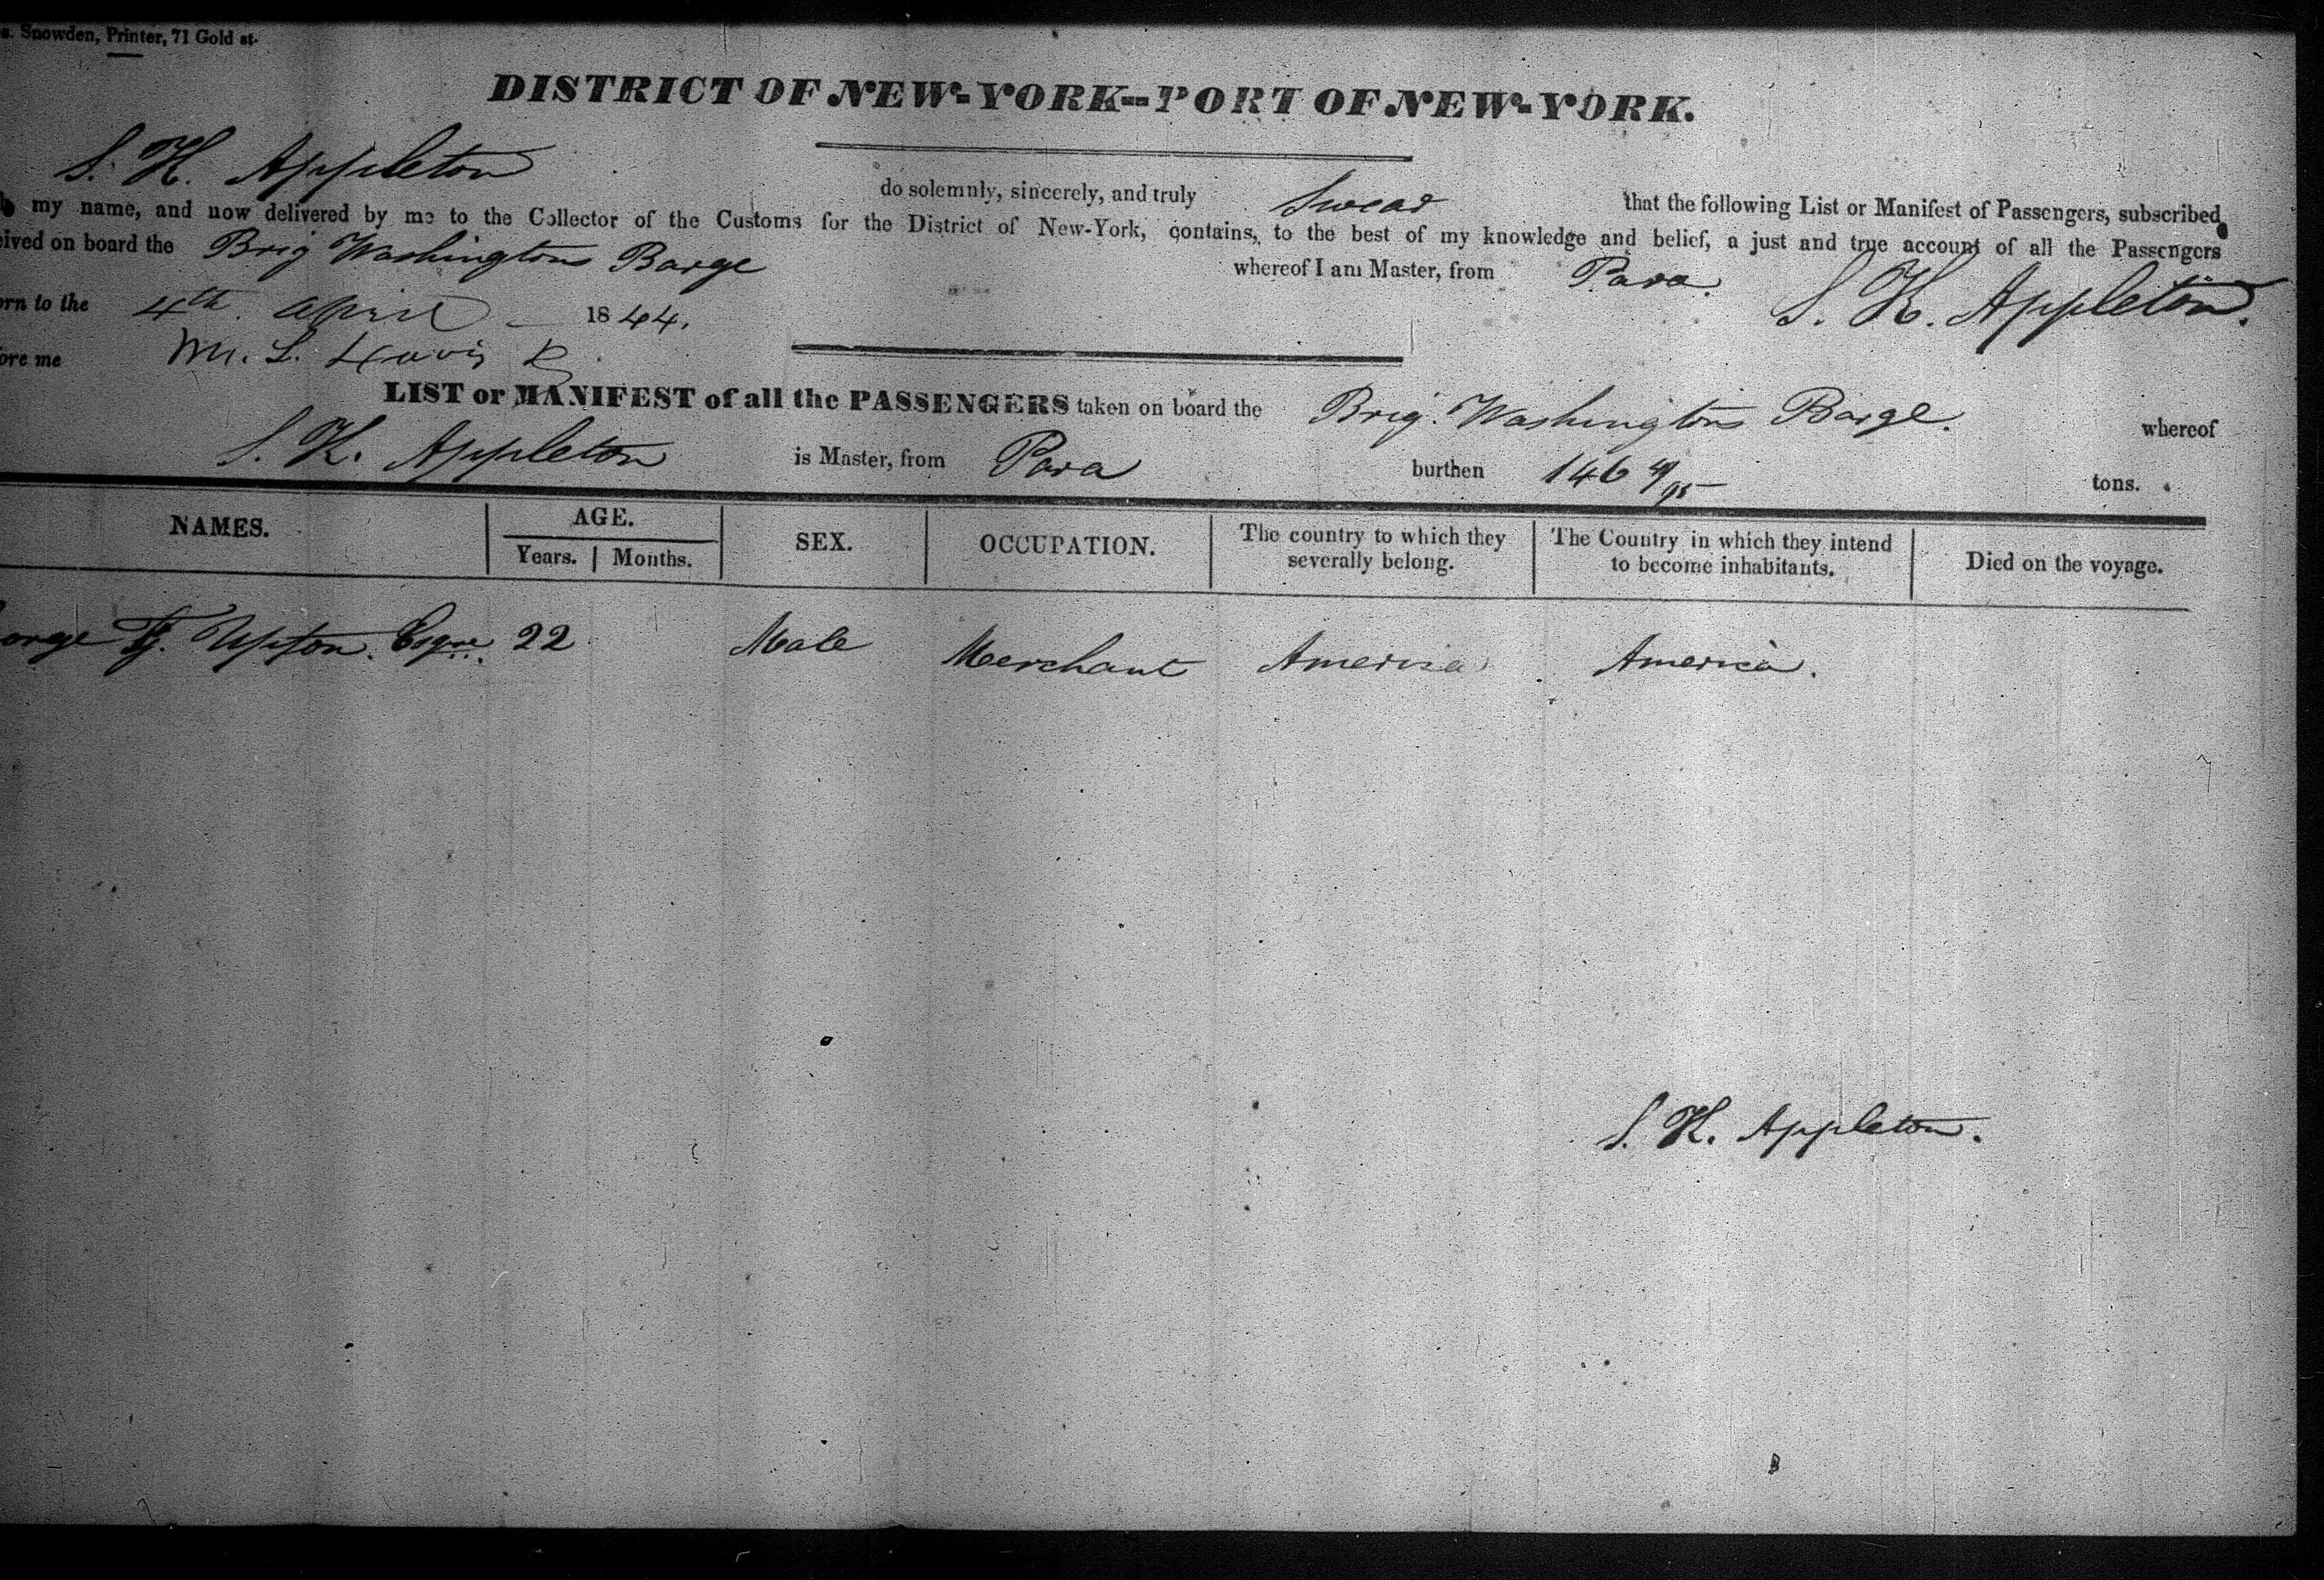 s. Snowden, Printer, 71 Gold st.
DISTRICT OF NEW-YORK--PORT OF NEW-YORK.
S. H. Appleton do solemnly, sincerely, and truly Swear that the following List or Manifest of Passengers, subscribed
my name, and now delivered by me to the Collector of the Customs for the District of New-York, contains, to the best of my knowledge and belief, a just and true account of all the Passengers
eived on board the Brig Washingtons Barge whereof I am Master, from Para.
orn to the 4th April 1844. S. H. Appleton.
ore me M. L. Davis
LIST or MANIFEST of all the PASSENGERS taken on board the Brig. Washingtons Barge. whereof
S. H. Appleton is Master, from Para burthen 146 /95 tons.
NAMES. AGE. SEX. OCCUPATION. The country to which they severally belong. The Country in which they intend to become inhabitants. Died on the voyage.
Years. Months.
orge Upton. Esqre. 22 Male Merchant America America.
S. H. Appleton.